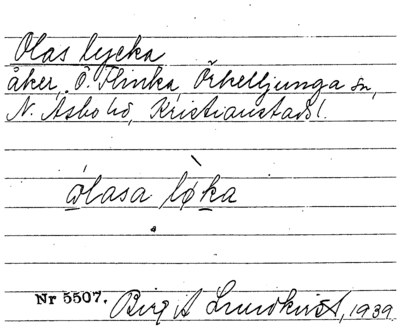 Olas lycka
åker, Ö. Flinka, Örkelljunga sn,
N. Åsbo hd, Kristianstads l.
ωlasa lø̀ka
Nr 5507. Birgit Lundkvist, 1939